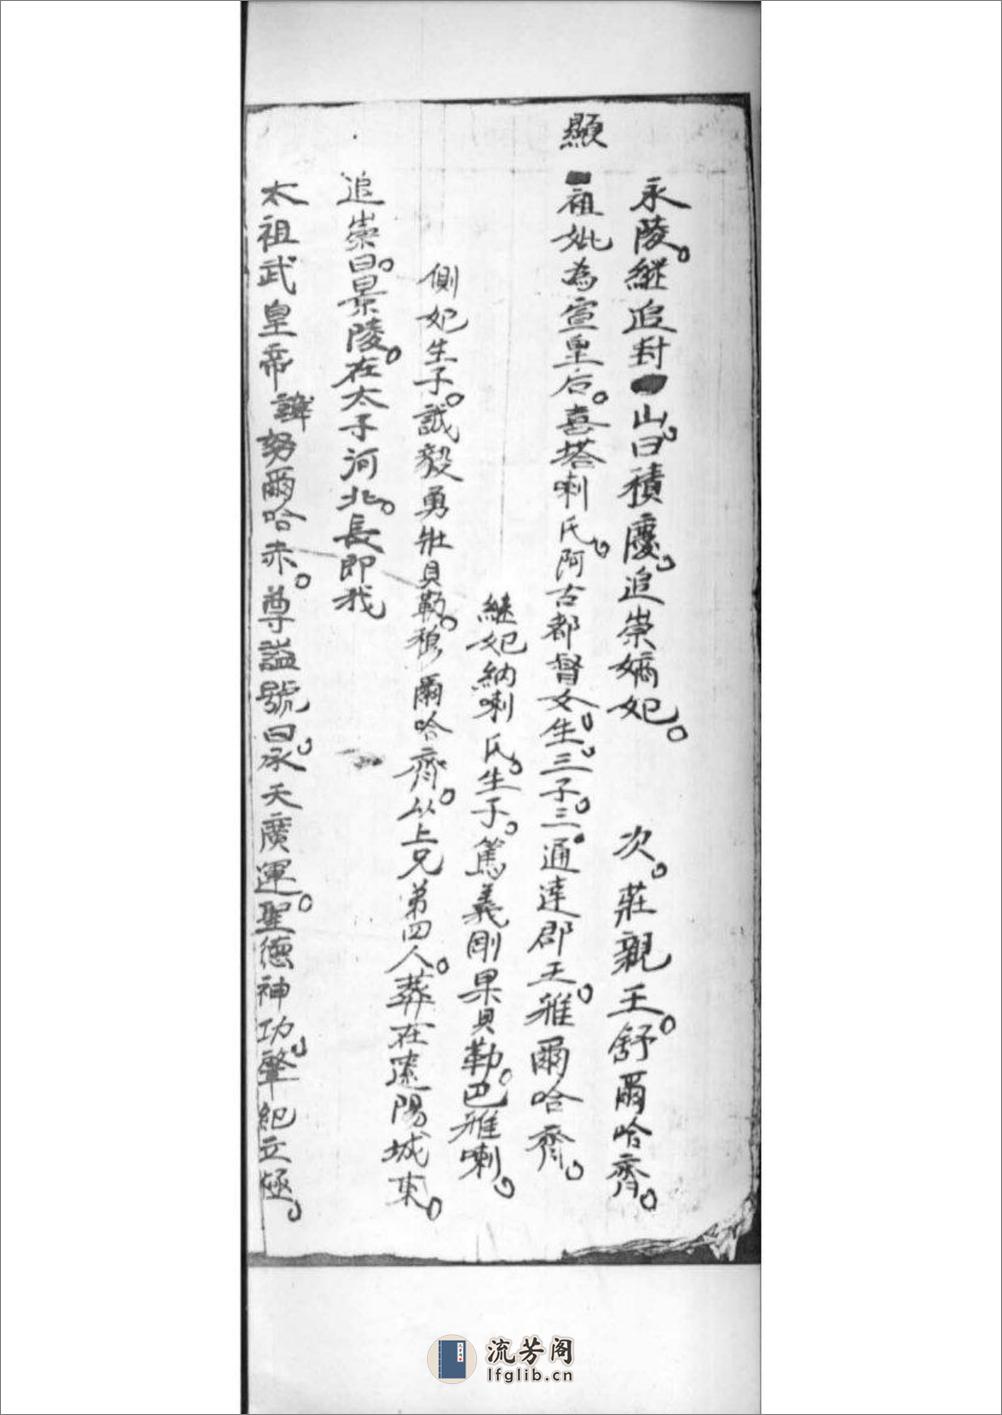 永陵。継追封山。曰積慶。追崇嫡妃。 次。莊親王。舒爾哈齊。
顯祖妣為宣皇后。喜塔喇氏。阿古都督女。生。三子。三。通達郡王。雅爾哈齊。
継妃納喇氏。生子。篤義剛果貝勒。巴雅喇。
側妃生子。誠毅勇壯貝勒。穆爾哈齊。以上兄弟四人。葬在遼陽城東。
追崇曰。景陵。在太子河北。長即我
太祖武皇帝諱努爾哈赤。尊謚號曰。承天廣運。聖德神功。肇紀立極。
流芳阁
lfglib.cn